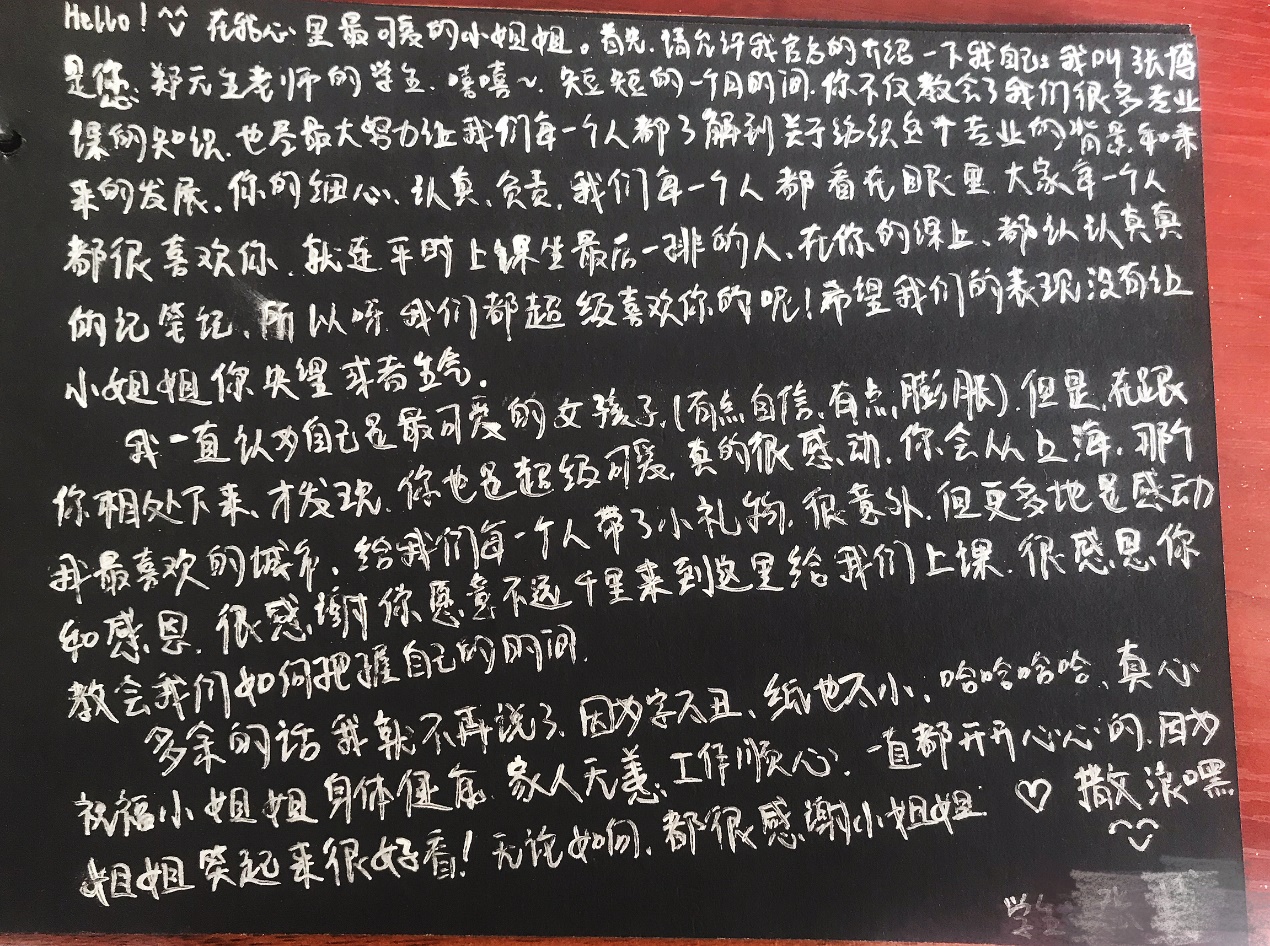 Hello! ^^ 在我心里最可爱的小姐姐。首先,请允许我官方的介绍一下我自己:我叫张博
是您郑元生老师的学生,嘻嘻~ 短短的一个月时间,你不仅教会了我们很多专业
课的知识,也尽最大努力让我们每一个人都了解到关于纺织这个专业的背景和未
来的发展。你的细心、认真、负责,我们每一个人都看在眼里,大家每一个人
都很喜欢你、就连平时上课坐最后一排的人、在你的课上、都认认真真
的记笔记、所以呀我们都超级喜欢你的呢!希望我们的表现没有让
小姐姐你失望或者生气。
我一直认为自己是最可爱的女孩子,(有点自信、有点膨胀).但是,在跟
你相处下来,才发现,你也是超级可爱,真的很感动,你会从上海,那个
我最喜欢的城市,给我们每一个人带了小礼物,很意外,但更多地是感动
和感恩,很感谢你愿意不远千里来到这里给我们上课,很感恩你
教会我们如何把握自己的时间.
多余的话我就不再说了,因为字太丑、纸也太小,哈哈哈哈、真心
祝福小姐姐身体健康,家人无恙、工作顺心,一直都开开心心的,因为
姐姐笑起来很好看!无论如何,都很感谢小姐姐 ♡ 撒浪嘿
^^
学生